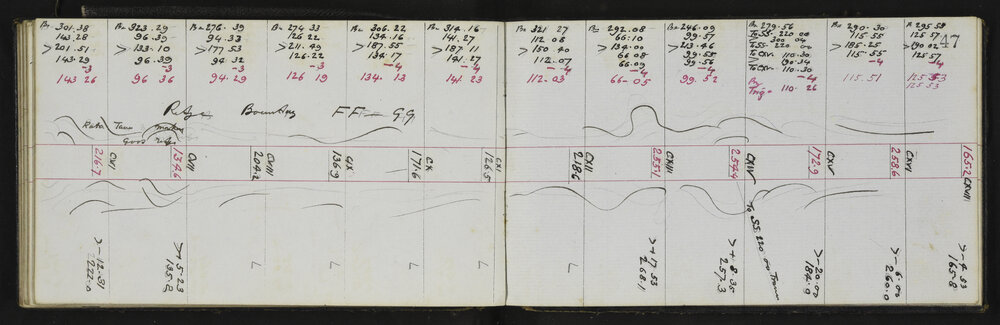 Bn 301.38
143.28
> 201.51
143.29
-3
143 26
Bn 323.29
96.39
> 133.10
96.39
-3
96 36
Bn 276.39
94.33
> 177 53
94 32
-3
94.29
Bn 274 33
126 22
> 211.49
126.22
-3
126 19
Bn 306.22
134.16
> 187.55
134.17
-4
134.13
Bn 314.16
141.27
> 187 11
141.27
-4
141 23
Bn 321 27
112 08
> 150 40
112.07
-4
112.03
Bn 292.08
66.10
> 134.00
66 08
66.09
-4
66-05
Bn 246.09
99.57
> 213.46
99.55
99.56
-4
99.52
Bn 279.56
To SS. 220 00
300 04
To SS. 220 00
To CXV. 110.30
190.34
To CXV. 110.30
-4
110.26
Bn 290.30
115 55
> 185.25
115.55
-4
115.51
295 59
125 57
190 02
125 57
-4
125 53
125 53
47
Boundary FF — GG
Rata Tawa
Good
216.7
CVI
134.6
CVII
204.2
CVIII
136.9
CIX
171.6
CX
126.5
CXI
218.6
CXII
255.1
CXIII
254.4
CXIV
172.9
CXV
258.6
CXVI
165.2
CXVII
> -12.31
222.0
> +5.23
135.2
L
L
L
L
> +17 53
268.1
> +8.35
257.3
To SS. 220.00
> -20.00
184.0
> -6.00
260.0
> -4.53
165.8